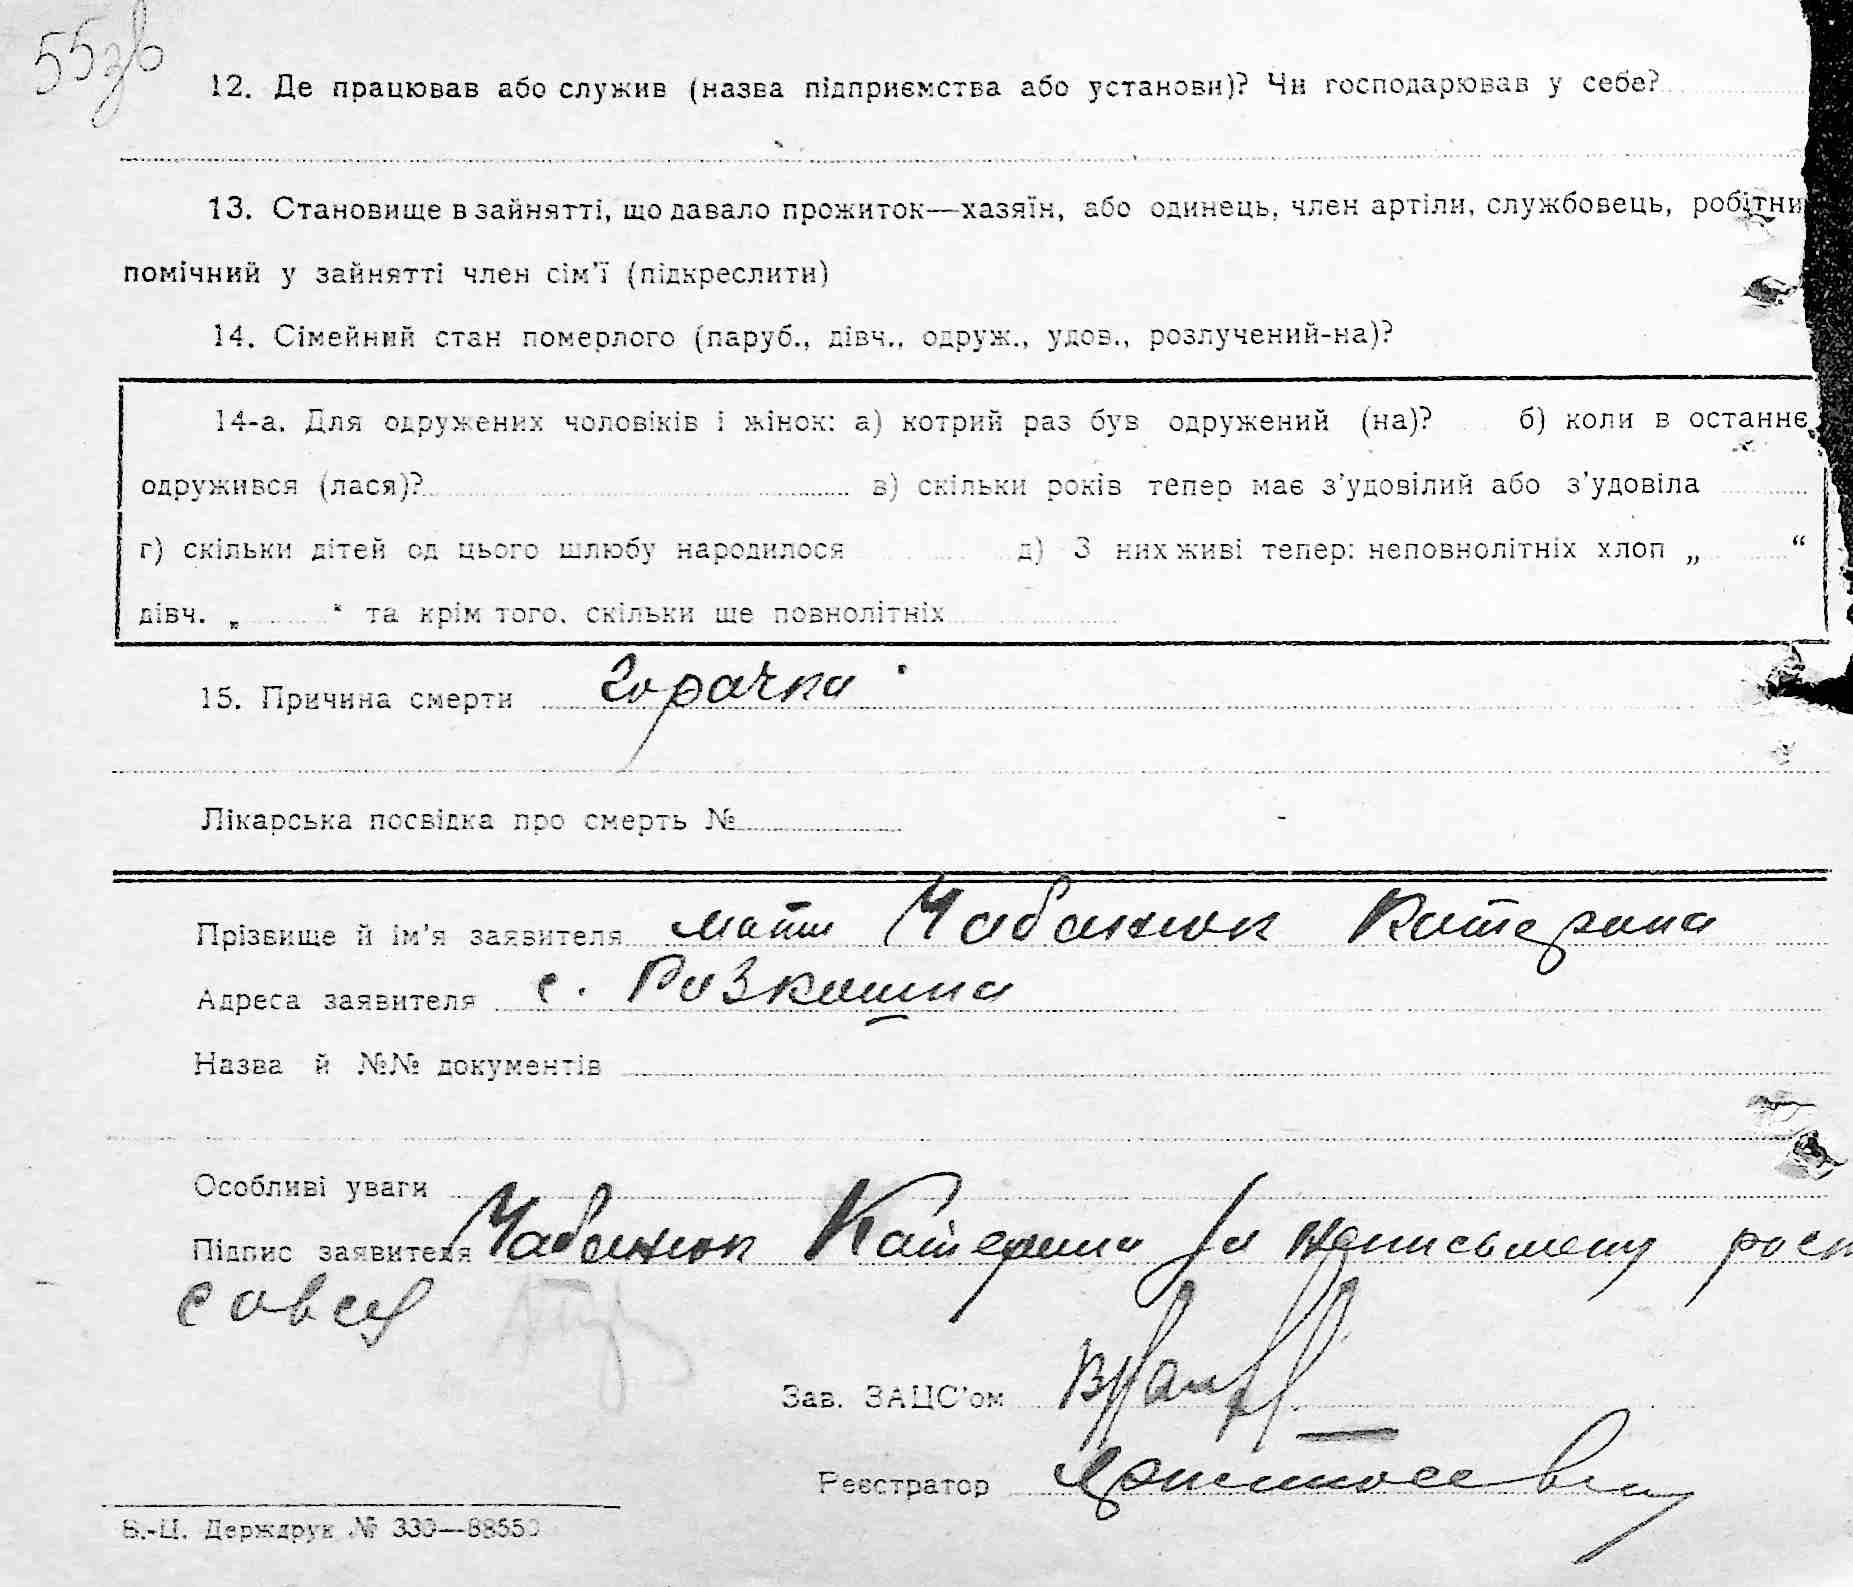 55зв
12. Де працював або служив (назва підприємства або установи)? Чи господарював у себе?
13. Становище в зайнятті, що давало прожиток—хазяїн, або одинець, член артіли, службовець, робітни
помічний у зайнятті член сім'ї (підкреслити)
14. Сімейний стан померлого (паруб., дівч., одруж., удов., розлучений-на)?
14-а. Для одружених чоловіків і жінок: а) котрий раз був одружений (на)? б) коли в останнє
одружився (лася)? в) скільки років тепер має з'удовілий або з'удовіла
г) скільки дітей од цього шлюбу народилося д) З них живі тепер: неповнолітніх хлоп „ “
дівч. „ “ та крім того, скільки ще повнолітніх
15. Причина смерти горачка
Лікарська посвідка про смерть №
Прізвище й ім'я заявителя мати Чабанюк Катерина
Адреса заявителя с. Розкошна
Назва й №№ документів
Особливі уваги
Підпис заявителя Чабанюк Катерина за неписьмену
Зав. ЗАЦС'ом
Реєстратор
В.-Ц. Держдрук № 330—88550